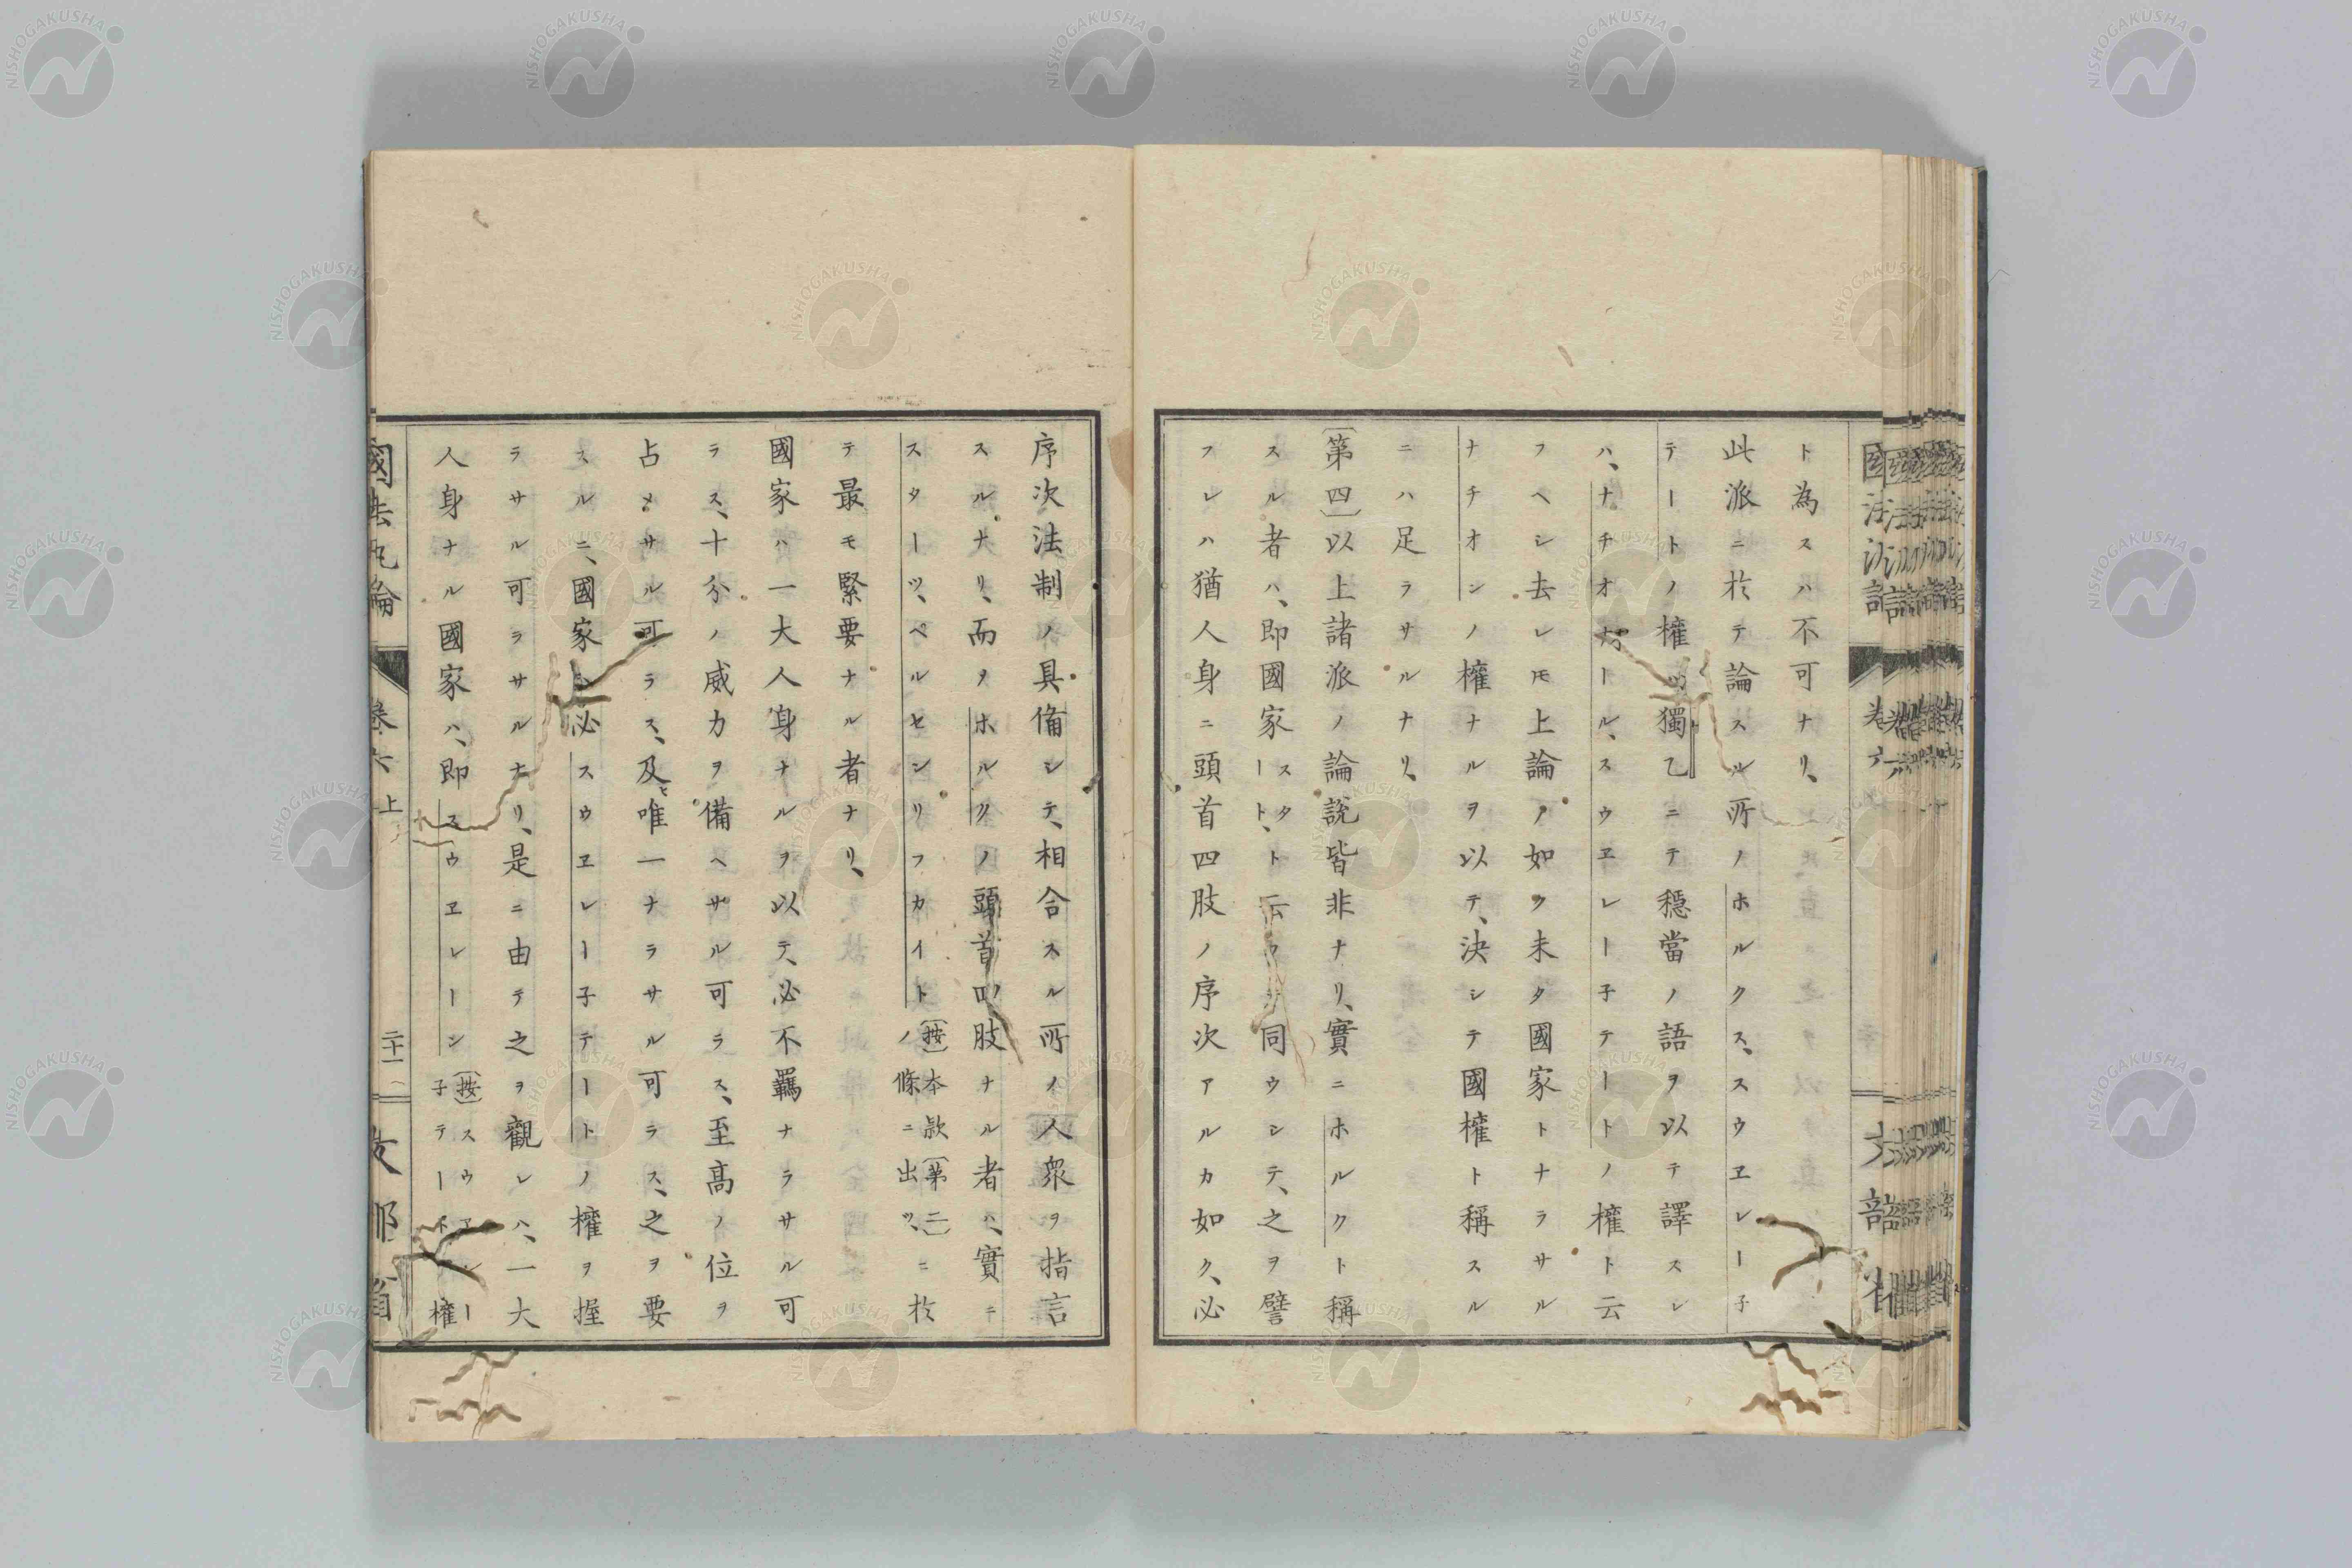 ト為スハ不可ナリ、
此派ニ於テ論スル所ノホルクス、スウヱレー子
テートノ權ヲ獨乙ニテ穩當ノ語ヲ以テ譯スレ
ハ、ナチオナール、スウヱレー子テートノ權ト云
フヘシ去レ𪜈上論ノ如ク未タ國家トナラサル
ナチオンノ權ナルヲ以テ、決シテ國權ト稱スル
ニハ足ラサルナリ、
〔第四〕以上諸派ノ論說皆非ナリ、實ニホルクト稱
スル者ハ、即國家スタート、ト云フニ同ウシテ、之ヲ譬
フレハ猶人身ニ頭首四肢ノ序次アルカ如ク、必
序次法制ノ具備シテ、相合スル所ノ人衆ヲ指言
スルナリ、而ヲホルクノ頭首四肢ナル者ハ、實ニ
スターツ、ペルセンリフカイト〔按〕本款〔第二〕ノ條ニ出ツ、ニ於
テ最モ緊要ナル者ナリ、
國家ハ一大人身ナルヲ以テ、必不羈ナラサル可
ラス、十分ノ威力ヲ備ヘサル可ラス、至高ノ位ヲ
占メサル可ラス、及ヒ唯一ナラサル可ラス、之ヲ要
スルニ、國家ハ必スウヱレー子テートノ權ヲ握
ラサル可ラサルナリ、是ニ由テ之ヲ觀レハ、一大
人身ナル國家ハ、即スウヱレーン〔按〕スウヱレー子テート權
國法汎論
卷六上
二十一
文部省